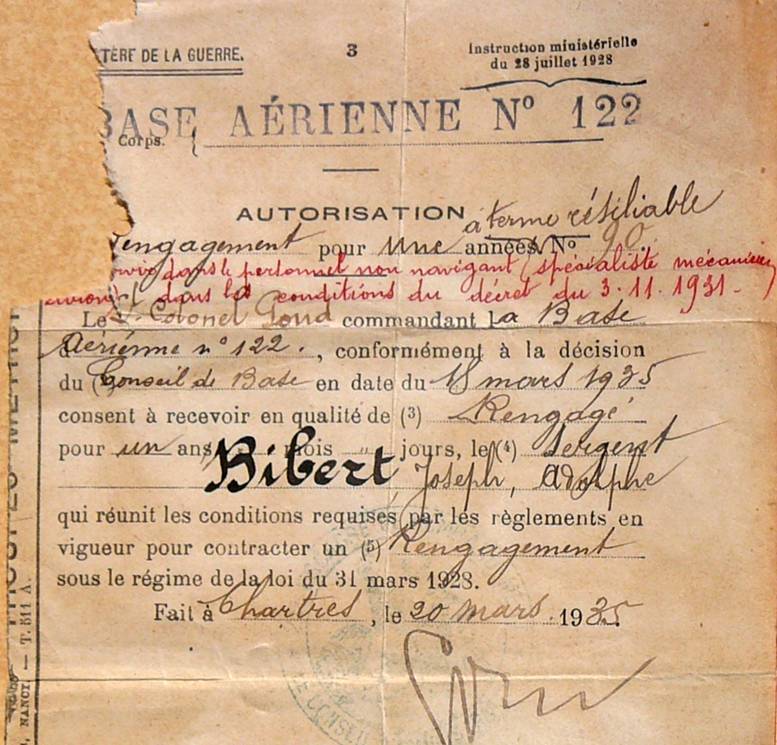 TÈRE DE LA GUERRE.
3
Instruction ministérielle
du 28 juillet 1928
BASE AÉRIENNE N° 122
Corps.
AUTORISATION
à terme résiliable
engagement pour une années N° 90
dans le personnel non navigant (spécialiste mécanicien
avion) dans les conditions du décret du 3.11.1931.-
Le Lt. Colonel commandant la Base
Aérienne n° 122., conformément à la décision
du Conseil de Base en date du 18 mars 1935
consent à recevoir en qualité de (3) Rengagé
pour un ans mois " jours, le (4) Sergent
Bibert Joseph, Adolphe
qui réunit les conditions requises par les règlements en
vigueur pour contracter un (5) Rengagement
sous le régime de la loi du 31 mars 1928.
Fait à Chartres, le 20 mars 1935
NANCY. — T. 511 A.